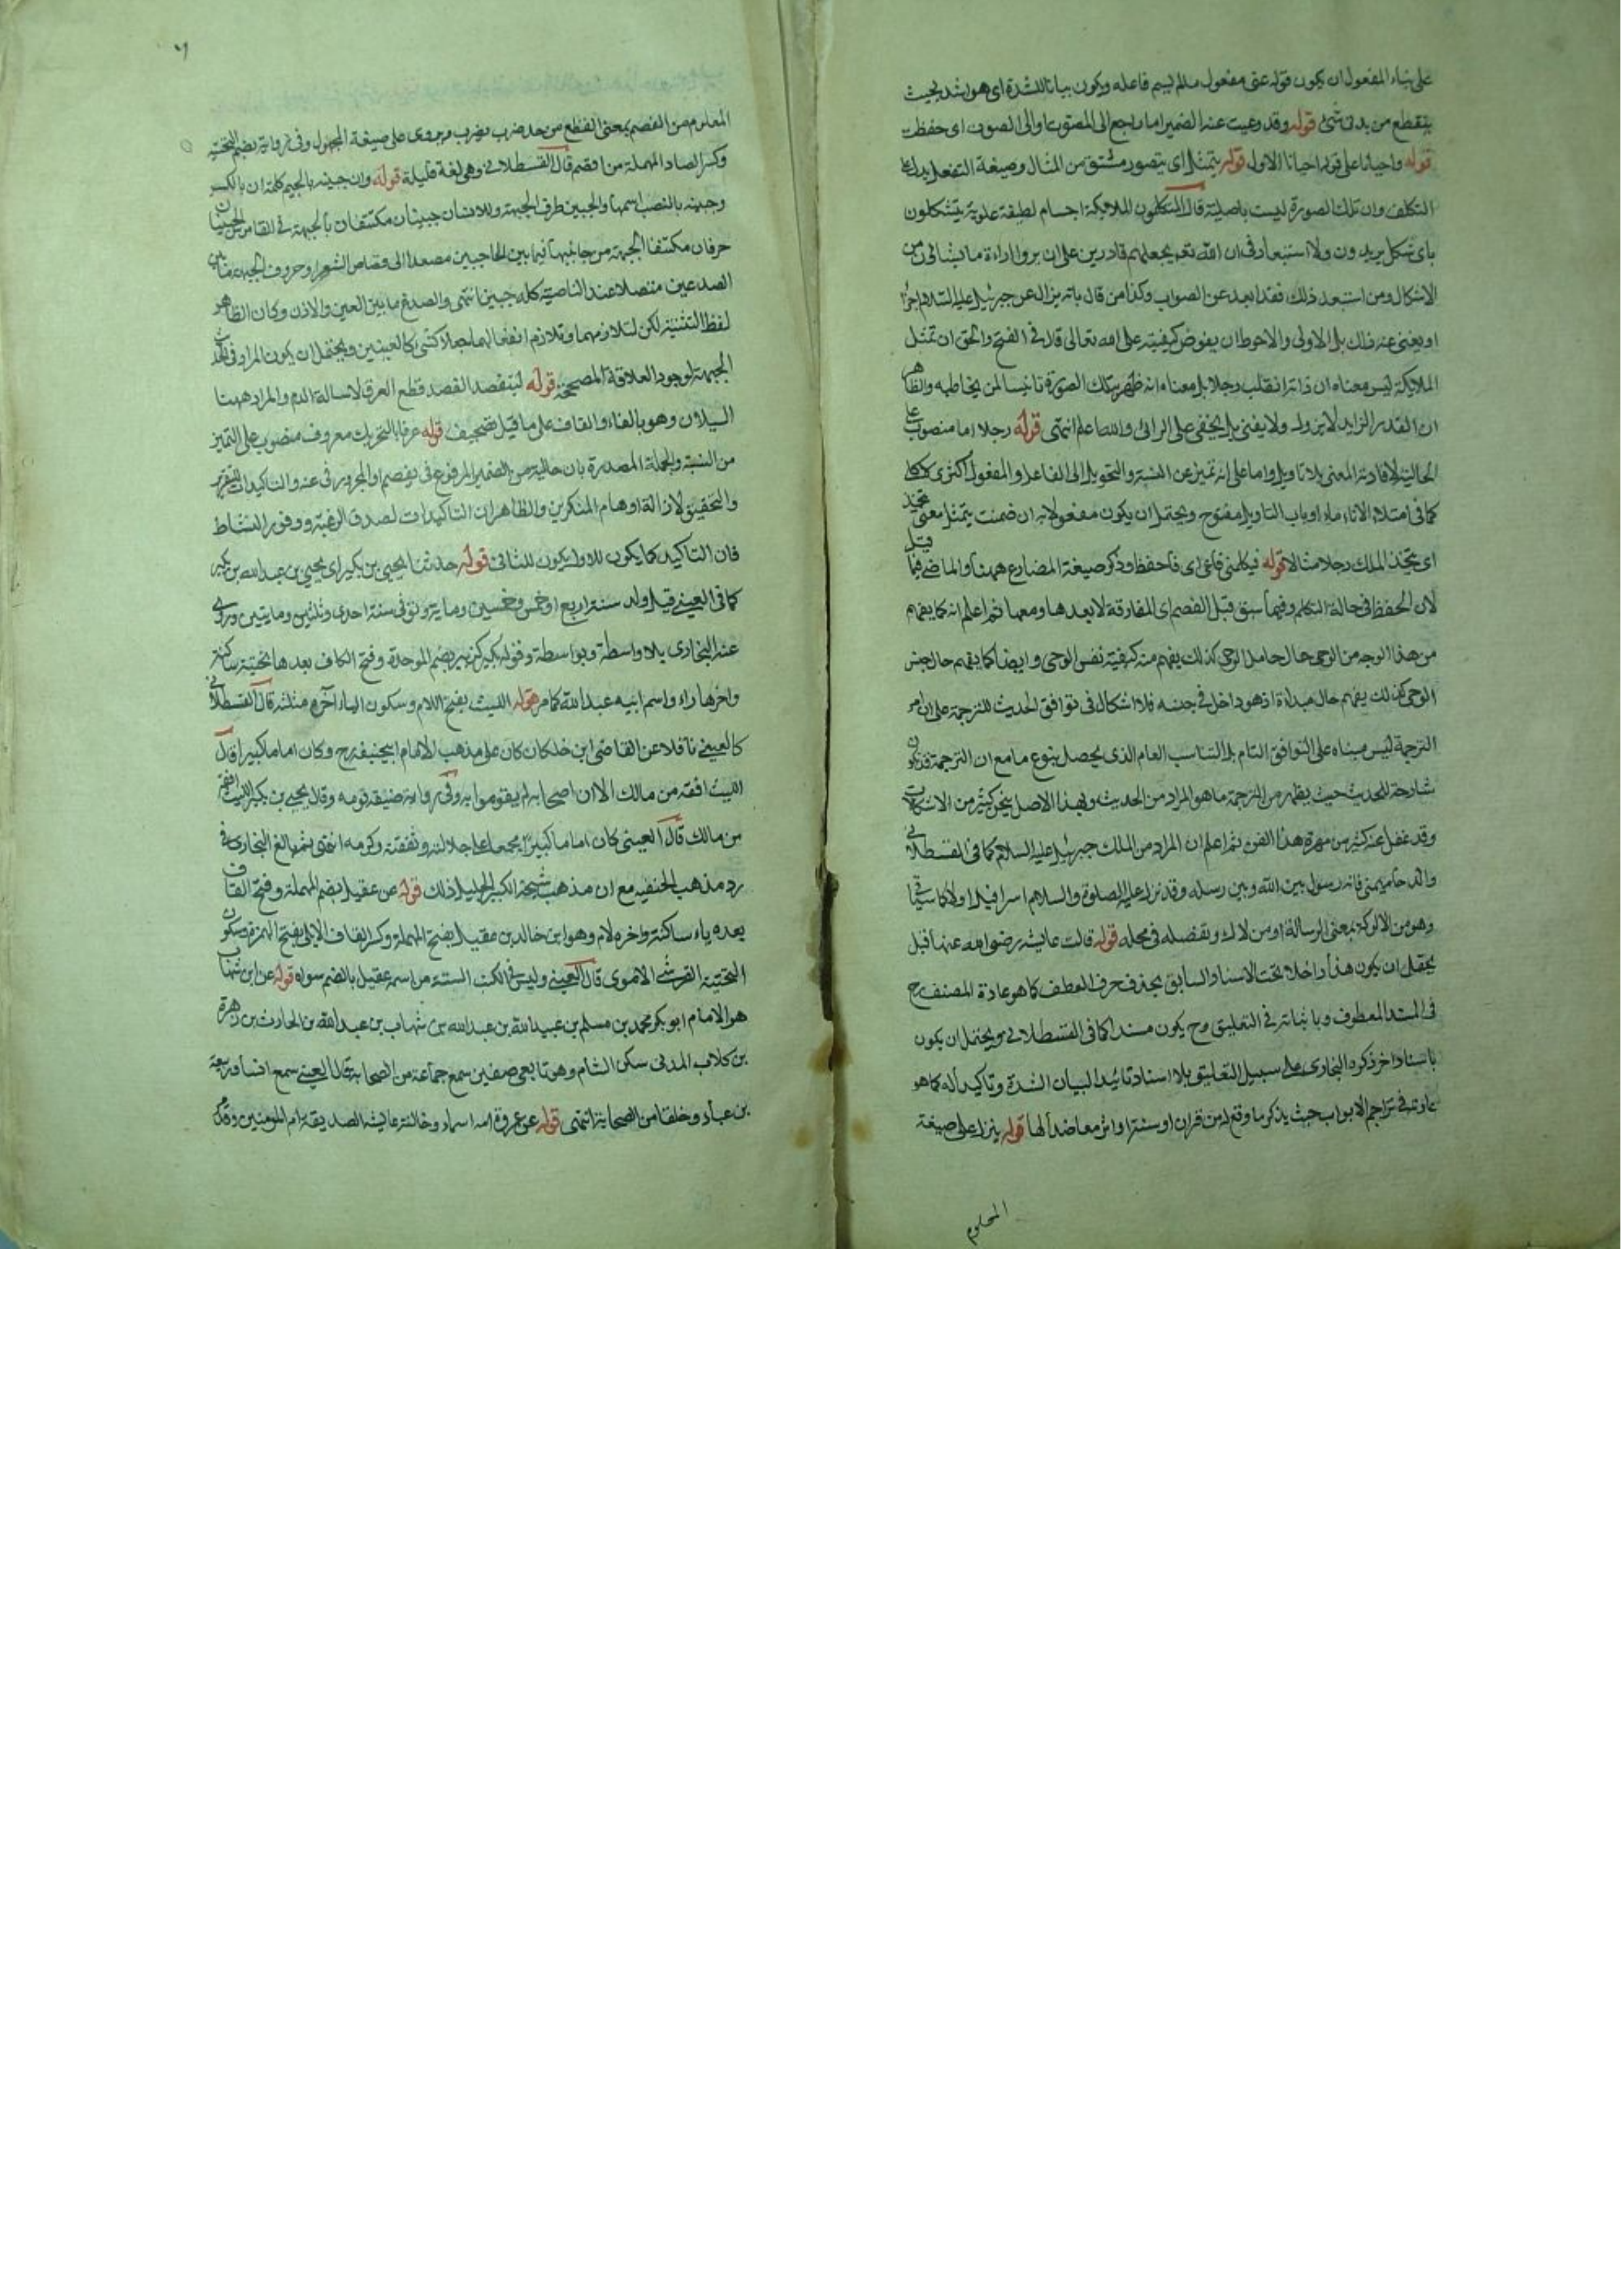 على بناء المفعول ان يكون قوله عنى مفعول مالم يسم فاعله ويكون بيانا للشدة اى هو اشد بحيث
ينقطع من بدنى شئ قوله وقد وعيت عنه الضمير اما راجع الى المصوت او الى الصوت اى حفظت
قوله واحيانا على قوله احيانا الاول قوله يتمثل اى يتصور مشتق من المثال وصيغة التفعل يدل على
التكلف وان تلك الصورة ليست باصلية قال المتكلمون الملايكة اجسام لطيفة علوية يتشكلون
باى شكل يريدون ولا استبعاد فى ان الله تعم يجعلهم قادرين على ان يروا اراءة ما يشا لى من
الاشكال ومن استبعد ذلك فقد ابعد عن الصواب وكذا من قال بانه يزال عن جبرئيل عليه السلام اجزا
او يفنى عنه ذلك بل الاولى والاحوط ان يفوض كيفيته على الله تعالى قال فى الفتح والحق ان تمثل
الملايكة ليس معناه ان ذاته انقلب رجلا بل معناه انه ظهر بتلك الصورة تانيسا لمن يخاطبه والظاهر
ان القدر الزايد لا يزول ولا يفنى بل يخفى على الرائى والله اعلم انتهى قوله رجلا اما منصوب على
الحالية لافادته المعنى بلا تاويل واما على انه تميز عن النسبة والتحويل الى الفاعل والمفعول اكثرى لا كلى
كما فى امتلاء الاناء ماء او باب التاويل مفتوح ويحتمل ان يكون مفعولا به ان ضمنت يتمثل معنى يتخذ
اى يتخذ الملك رجلا مثالا قوله فيكلمنى فاعى اى فاحفظ وذكر صيغة المضارع ههنا والماضى فيما قبل
لان الحفظ فى حالة التكلم وفيما سبق قبل الفصم اى المفارقة لا بعدها ومعها ثم اعلم انه كما يفهم
من هذا الوجه من الوحى حال حامل الوحى كذلك يفهم منه كيفية نفس الوحى وايضا كما يفهم حال جنس
الوحى كذلك يفهم حال مبداه اذ هو داخل فى جنسه فلا اشكال فى توافق الحديث للترجمة على ان امر
الترجمة ليس مبناه على التوافق التام بل التناسب العام الذى يحصل بنوع ما مع ان الترجمة قد تكون
شارحة للحديث حيث يظهر من الترجمة ما هو المراد من الحديث وبهذا الاصل ينحل كثير من الاشكالات
وقد غفل عنه كثير من مهرة هذا الفن ثم اعلم ان المراد من الملك جبرئيل عليه السلام كما فى القسطلانى
فانه رسول بين الله وبين رسله وقد نزل عليه الصلوة والسلام اسرافيل اولا كما سياتى
وهو من الالوكة بمعنى الرسالة او من لاك وتفصيله فى محله قوله قالت عايشه رضى الله عنها قيل
يحتمل ان يكون هذا داخلا تحت الاسناد السابق بحذف حرف العطف كما هو عادة المصنف رح
فى المسند المعطوف وباثباته فى التعليق وح يكون مسندا كما فى القسطلانى ويحتمل ان يكون
باسناد اخر ذكره البخارى على سبيل التعليق بلا اسناد تائيدا لبيان الشدة وتاكيدا له كما هو
عادته فى تراجم الابواب حيث يذكر ما وقع له من قران او سنة او اثر معاضدا لها قوله ينزل على صيغة
المعلوم
٦
المعلوم من الفصم بمعنى القطع من حد ضرب يضرب ويروى على صيغة المجهول وفى رواية بضم التحتية
وكسر الصاد المهملة من افصم قال القسطلانى وهى لغة قليلة قوله وان جبينه بالجيم كلمة ان بالكسر
وجبينه بالنصب اسمها والجبين طرف الجبهة وللانسان جبينان مكتنفان بالجبهة فى القاموس الجبينان
حرفان مكتنفا الجبهة من جانبيها فيما بين الحاجبين مصعدا الى قصاص الشعر او حروف الجبهة ما بين
الصدغين متصلا عند الناصية كله جبين انتهى والصدغ ما بين العين والاذن وكان الظاهر
لفظ التثنية لكن لتلازمهما وتلازم افعالهما جعلا كشئ كالعينين ويحتمل ان يكون المراد
الجبهة لوجود العلاقة المصححة قوله ليتفصد الفصد قطع العرق لاسالة الدم والمراد ههنا
السيلان وهو بالفاء والقاف على ما قيل تصحيف قوله عرقا بالتحريك معروف منصوب على التميز
من النسبة والجملة المصدرة بان حالية من الضمير المرفوع فى يفصم او المجرور فى عنه والتاكيدات للتقرير
والتحقيق لازالة اوهام المنكرين والظاهر ان التاكيدات لصدق الرغبة ووفور النشاط
فان التاكيد كما يكون للاول يكون للثانى قوله حدثنا يحيى بن بكير اى يحيى بن عبدالله بن بكير
كما فى العينى قيل ولد سنة اربع او خمس وخمسين وماية وتوفى سنة احدى وثلثين ومايتين وروى
عنه البخارى بلا واسطة وبواسطة وقوله بكير كزبير بضم الموحدة وفتح الكاف بعدها تحتية ساكنة
واخرها راء واسم ابيه عبدالله كما مر قوله الليث بفتح اللام وسكون الياء اخره مثلثه قال القسطلانى
كالعينى ناقلا عن القاضى ابن خلكان كان على مذهب الامام ابيحنيفه رح وكان اماما كبيرا قال
الليث افقه من مالك الا ان اصحابه لم يقوموا به وفى رواية ضيقه قومه وقال يحيى بن بكير الليث افقه
من مالك قال العينى كان اماما كبيرا مجمعا على جلالته وثقته وكرمه انتهى ثم بالغ البخارى فى
رد مذهب الحنفيه مع ان مذهب شيخه الكبير الجليل ذلك قوله عن عقيل بضم المهملة وفتح القاف
بعده ياء ساكنة واخره لام وهو ابن خالد بن عقيل بفتح المهملة وكسر القاف الايلى بفتح الهمزة وسكون
التحتية القرشى الاموى قال العينى وليس فى الكتب الستة من اسمه عقيل بالضم سواه قوله عن ابن شهاب
هو الامام ابو بكر محمد بن مسلم بن عبيدالله بن عبدالله بن شهاب بن عبدالله بن الحارث بن زهرة
بن كلاب المدنى سكن الشام وهو تابعى صغير سمع جماعة من الصحابة قال العينى سمع انسا وربيعة
بن عباد وخلقا من الصحابة انتهى قوله عن عروة امه اسماء وخالته عايشه الصديقة ام المومنين وقد